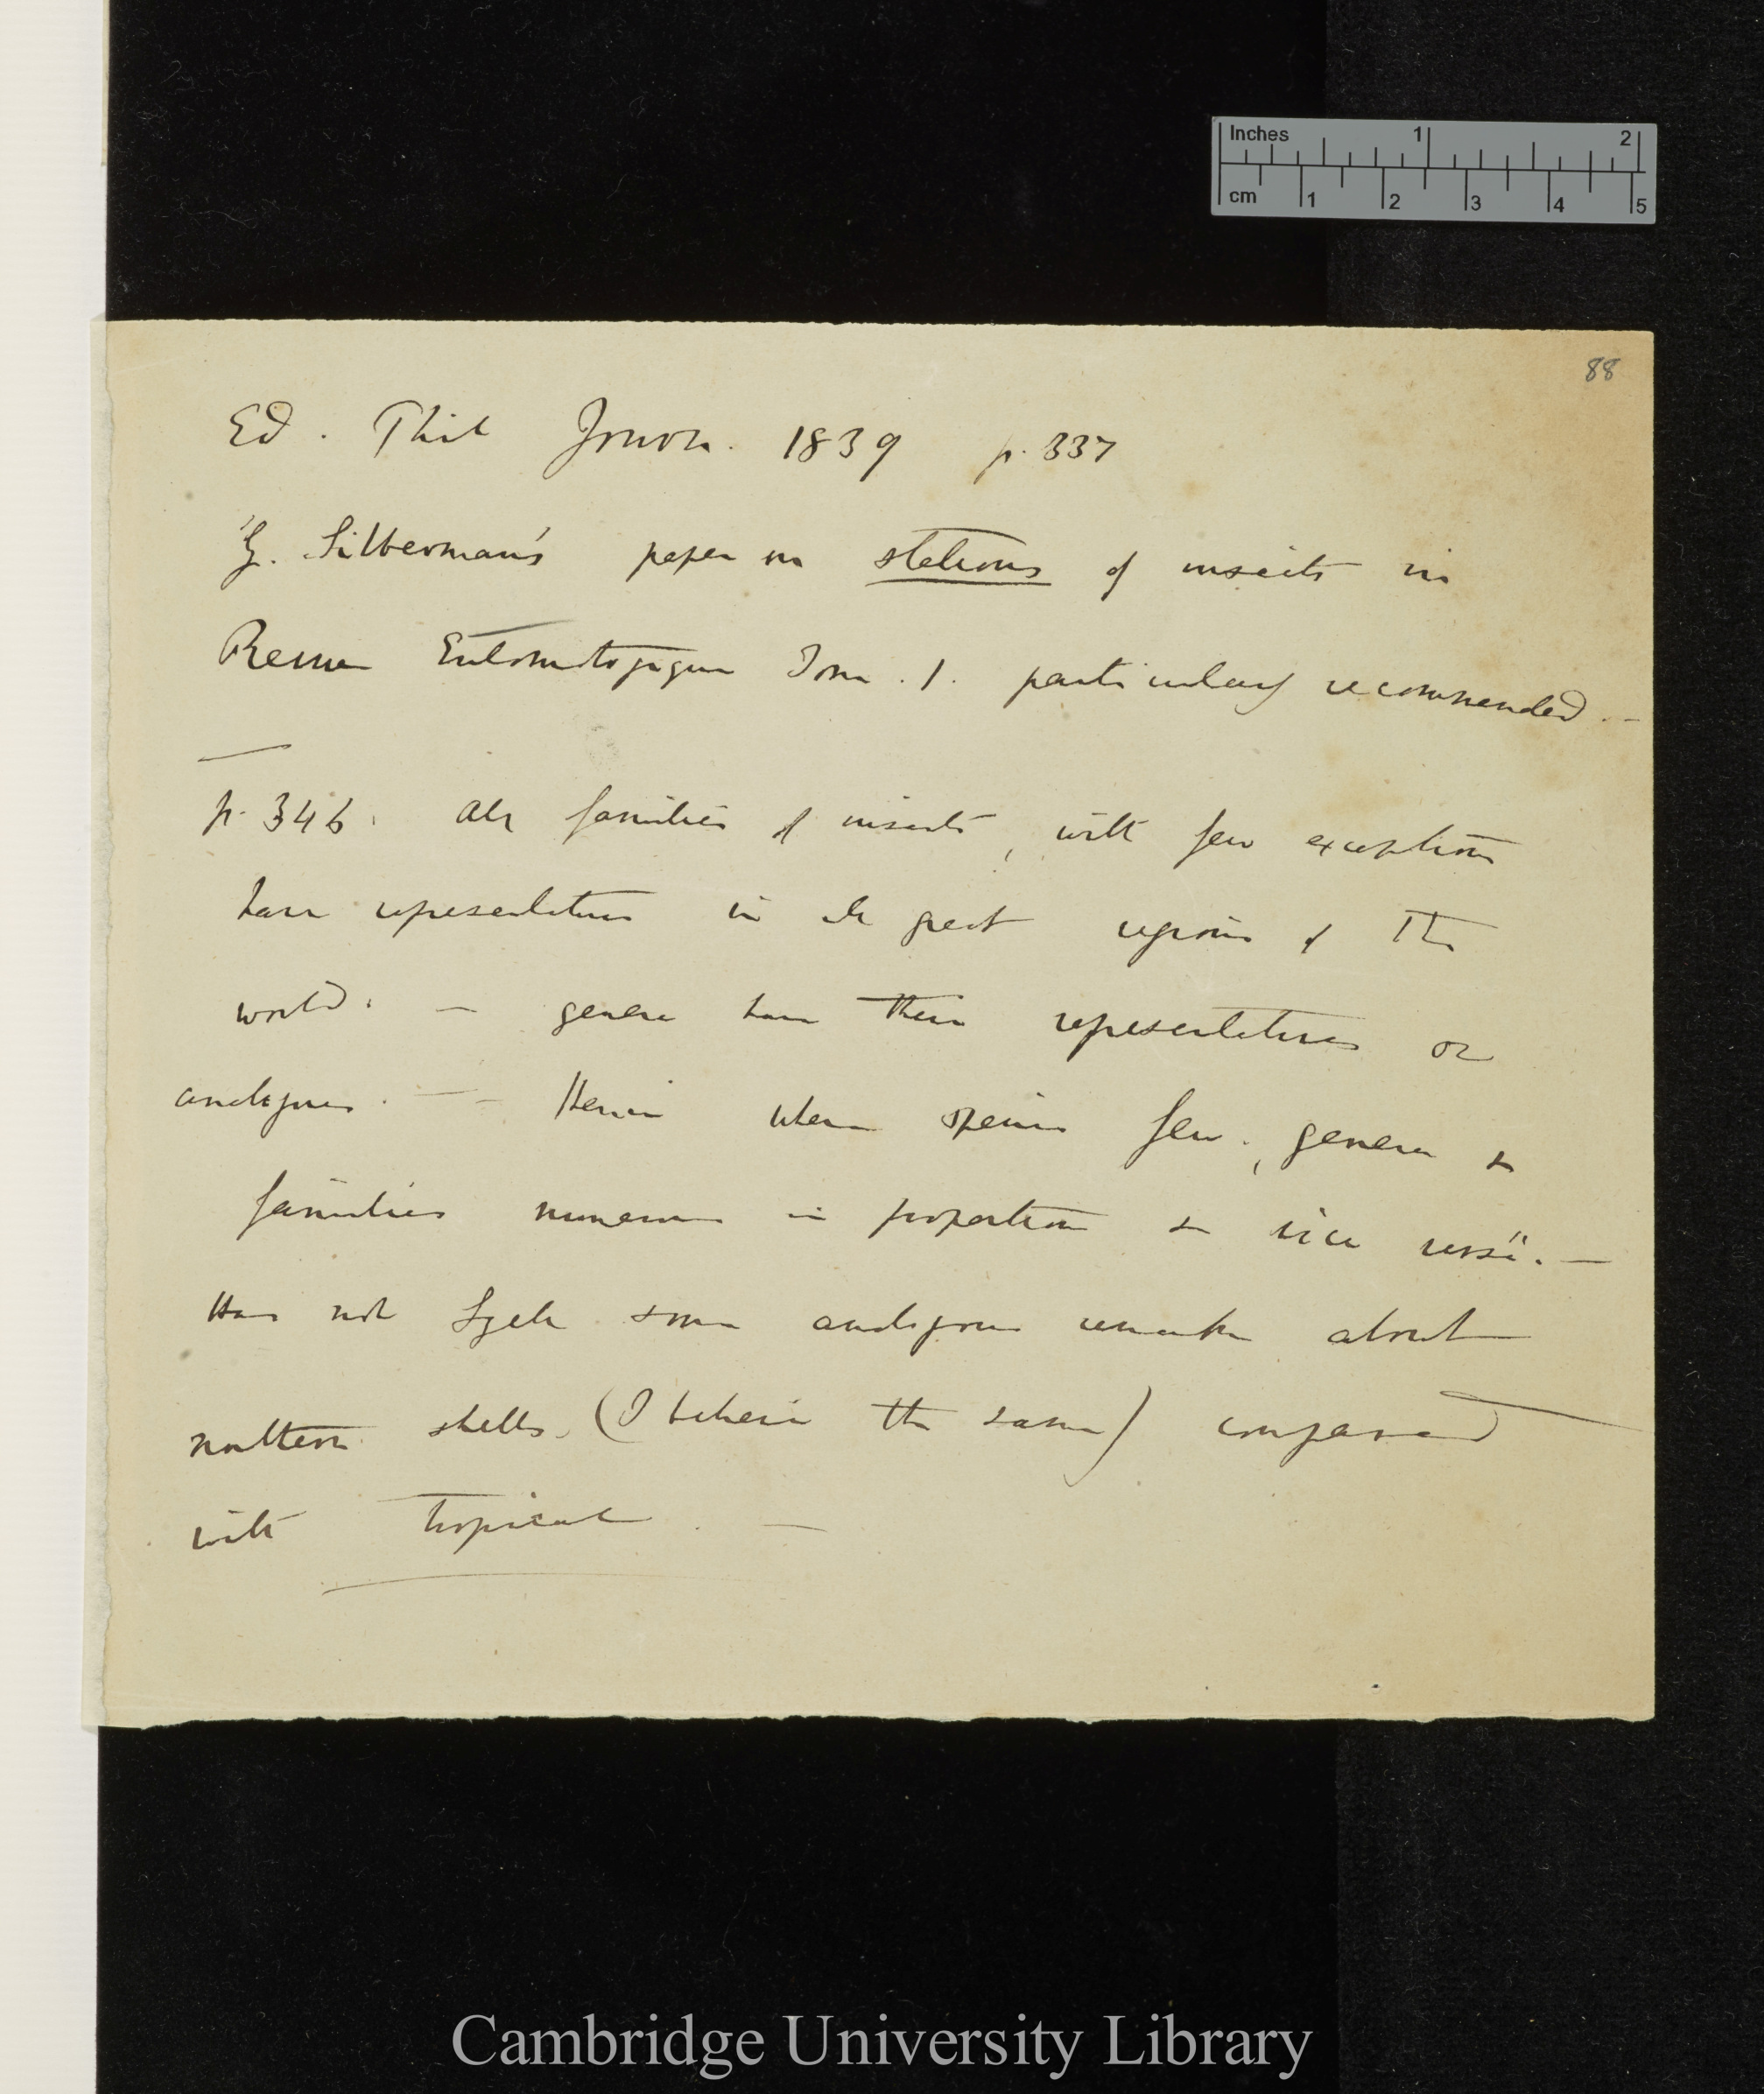 Inches 1 2
cm 1 2 3 4 5
88
Ed. Phil Journ. 1839 p. 337
G. Silberman's paper on stations of insects in
Revue Entomologique Tom. 1. particularly recommended. —
p. 346. All families of insects, with few exceptions
have representatives in all great regions of the
world. — genera have their representatives or
analogues. — Hence when species few, genera &
families numerous in proportion & vice versâ. —
Has not Lyell some analogous remarks about
northern shells. (I believe the same) compared
with tropical. —
Cambridge University Library